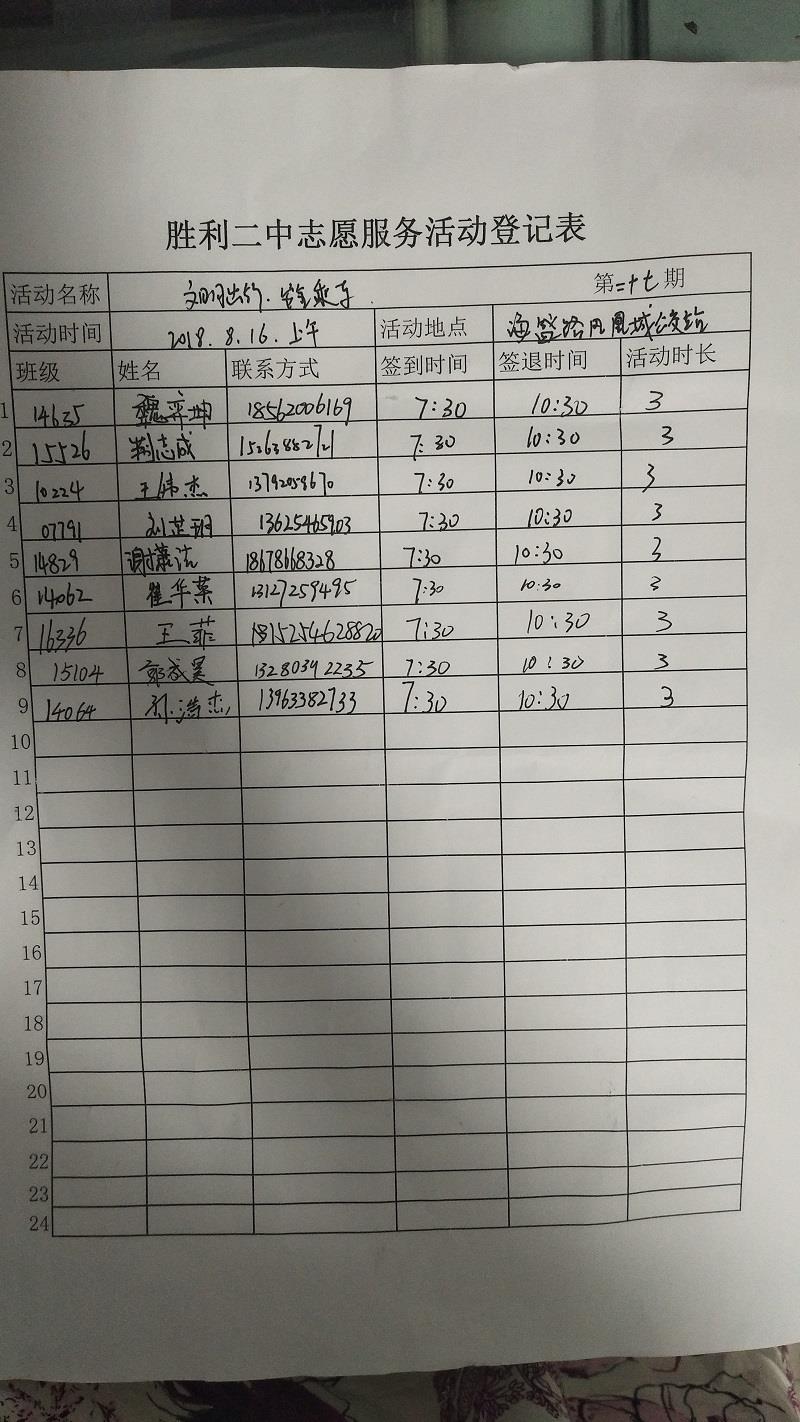 胜利二中志愿服务活动登记表
活动名称 文明出行.安全乘车. 第二十七期
活动时间 2018.8.16.上午 活动地点 海盛路凤凰城公交站
班级 姓名 联系方式 签到时间 签退时间 活动时长
1 14635 魏弈坤 18562006169 7:30 10:30 3
2 15526 志成 7:30 10:30 3
3 10224 王伟杰 7:30 10:30 3
4 07791 刘芷玥 13625465903 7:30 10:30 3
5 14829 谢潇洁 18678668328 7:30 10:30 3
6 14062 崔华 13127259495 7:30 10:30 3
7 16336 王菲 7:30 10:30 3
8 15104 郭成昊 13280392235 7:30 10:30 3
9 14064 浩杰 13963382733 7:30 10:30 3
10
11
12
13
14
15
16
17
18
19
20
21
22
23
24